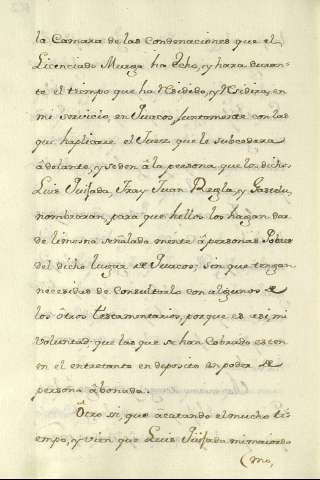 la Camara de las Condenaciones que el
Licenciado Murga ha echo, y hara duran-
te el tiempo que ha Residido, y Residira, en
mi servicio, en Juacos, juntamente con las
que haplicare el Juez, que le subcedera
adelante, y se den â la persona que los dichos
Luis Quijada, Fray Juan Regla, y Gastelu,
nombraran, para que hellos los hagan dar
de limosna señalada mente â personas Pobres
del dicho lugar de Juacos, sin que tengan
necesidad de Consultarlo con algunos de
los ôtros testamentarios, porque es asi mi
voluntad que las que se han Cobrado esten
en el entretanto en deposito en poder de
persona âbonada.
Ôtro si, que acatando el mucho ti-
empo, y vien que Luis Quijada mi mayordo
(mo,